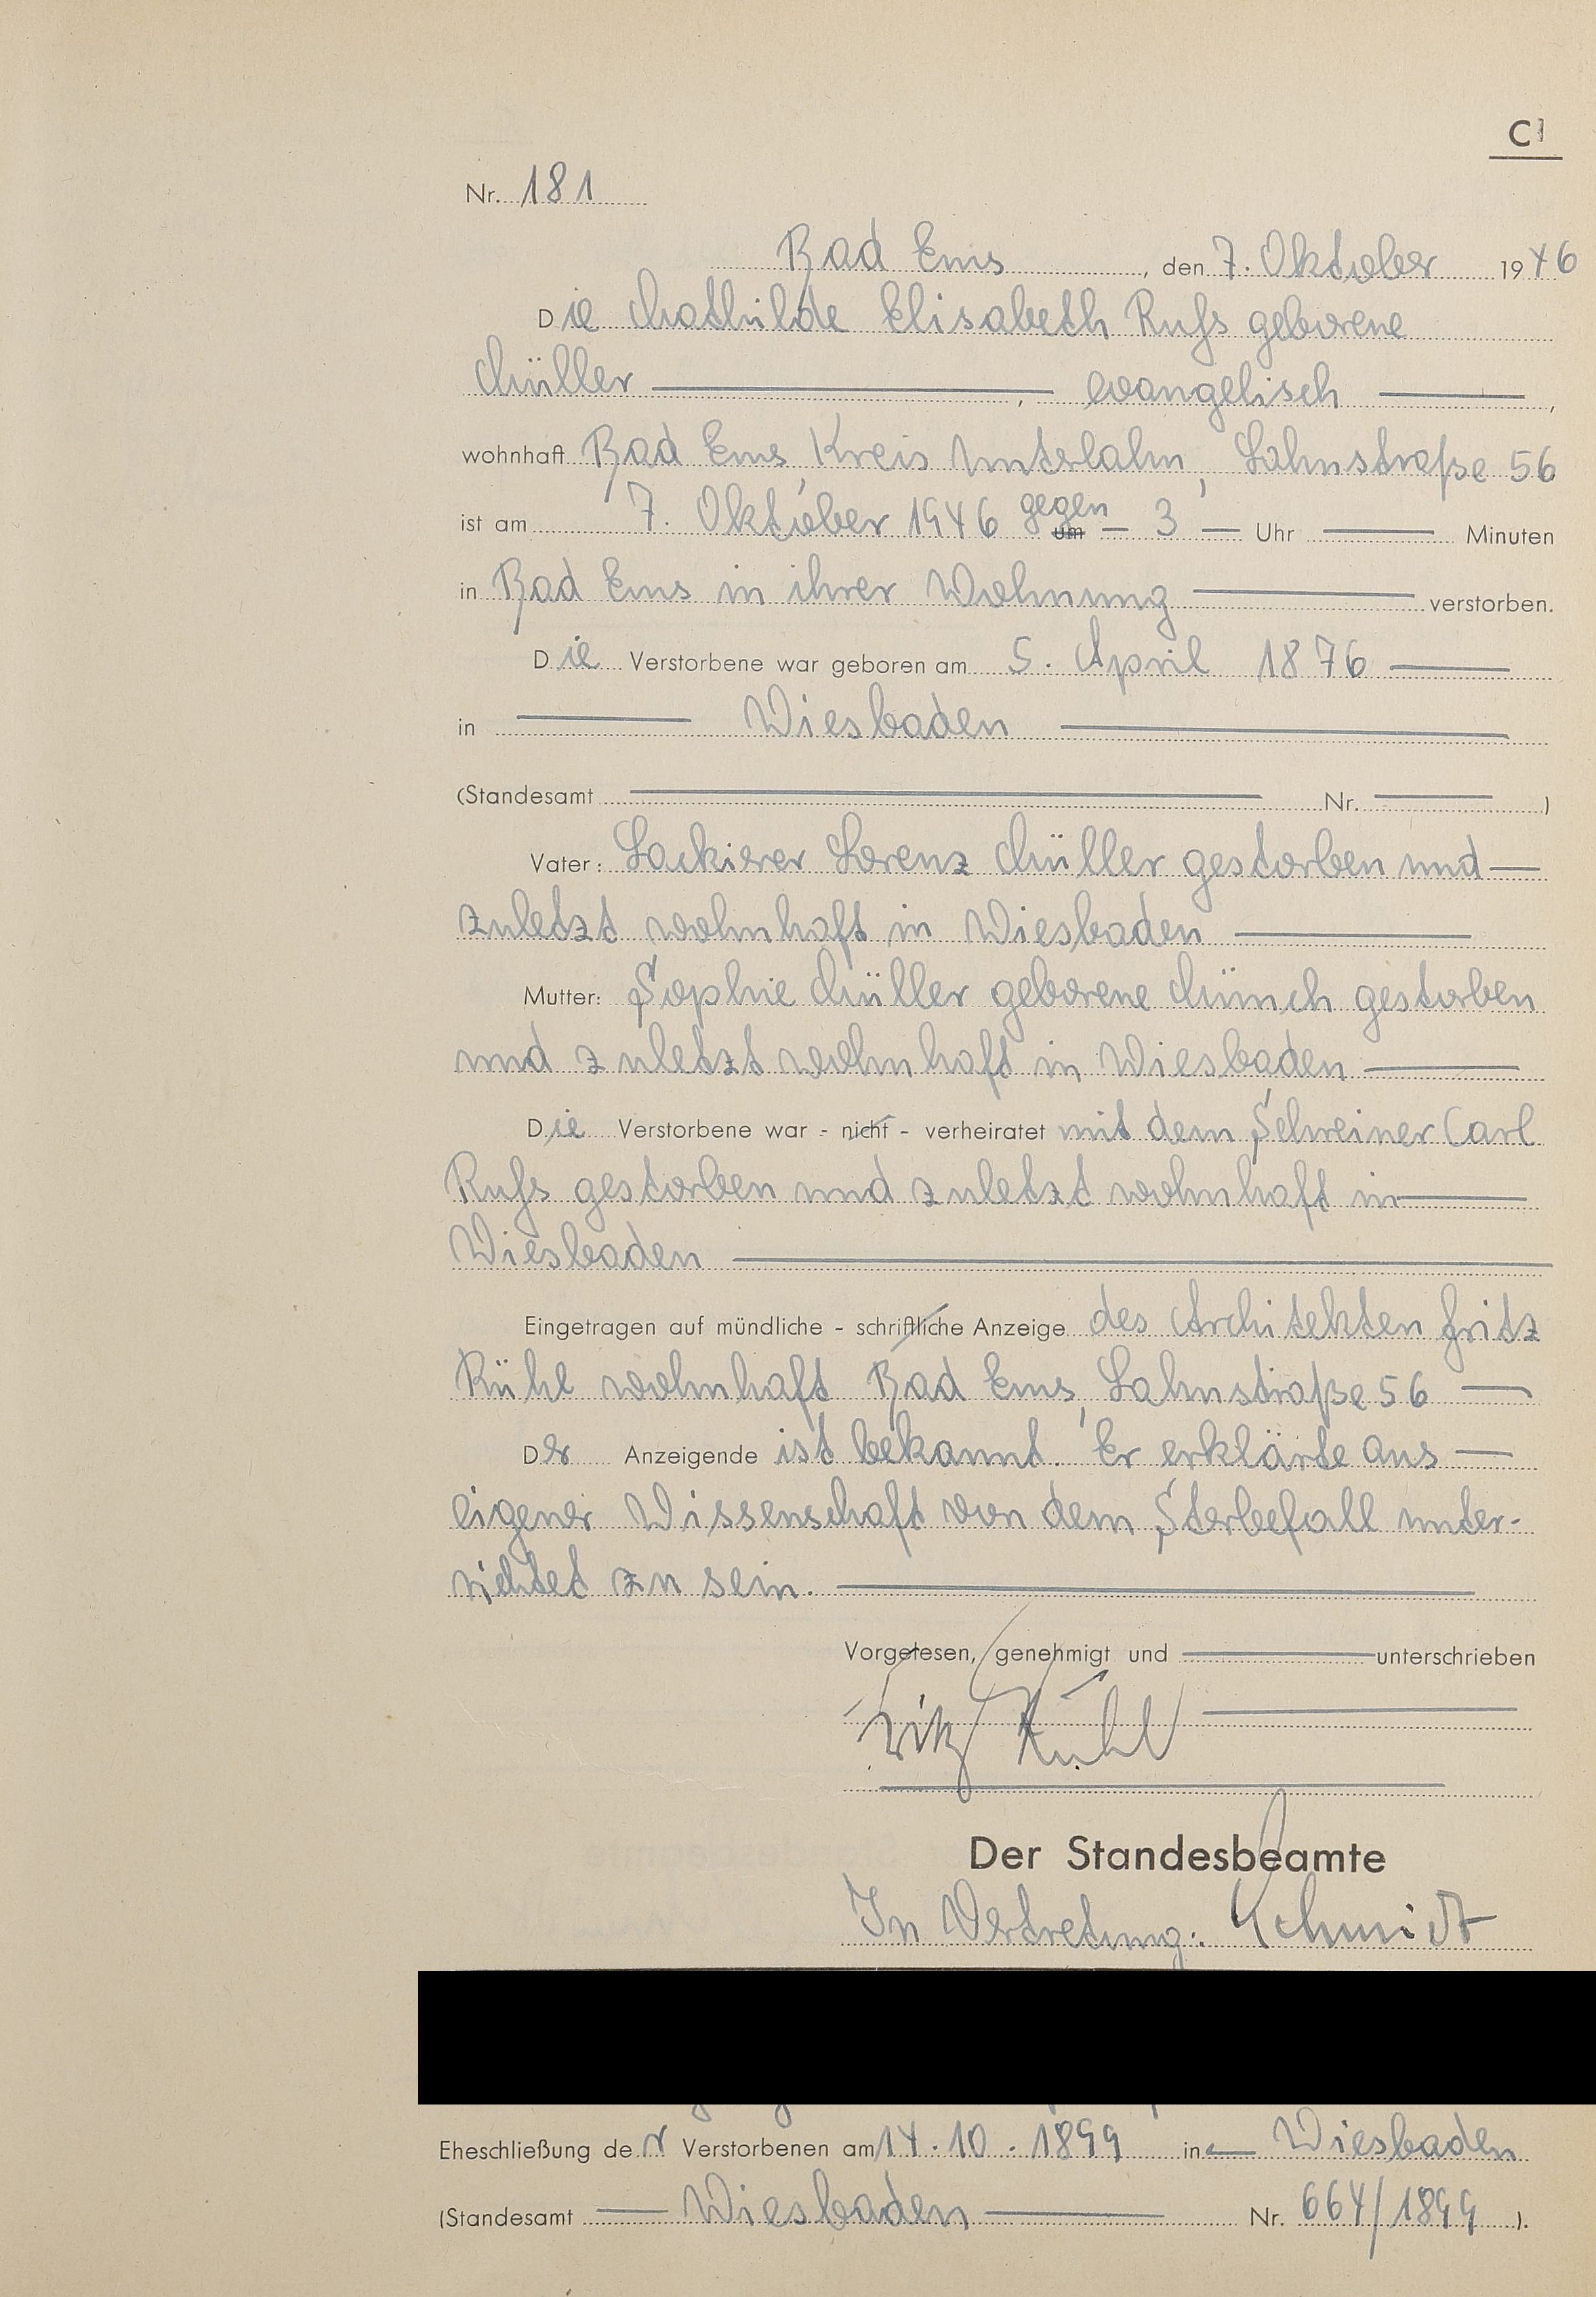 C
Nr. 181
Bad Ems, den 7. Oktober 1946
Die Mathilde Elisabeth Rufs geborene
Müller, evangelisch,
wohnhaft Bad Ems, Kreis Unterlahn, Lahnstraße 56
ist am 7. Oktober 1946 gegen um 3 Uhr Minuten
in Bad Ems in ihrer Wohnung verstorben.
Die Verstorbene war geboren am 5. April 1876
in Wiesbaden
(Standesamt Nr. )
Vater: Lackierer Lorenz Müller gestorben und
zuletzt wohnhaft in Wiesbaden
Mutter: Sophie Müller geborene Münch gestorben
und zuletzt wohnhaft in Wiesbaden
Die Verstorbene war - nicht - verheiratet mit dem Schreiner Carl
Rufs gestorben und zuletzt wohnhaft in
Wiesbaden
Eingetragen auf mündliche - schriftliche Anzeige des Architekten Fritz
Rühl wohnhaft Bad Ems, Lahnstraße 56
Der Anzeigende ist bekannt. Er erklärte aus
eigener Wissenschaft von dem Sterbefall unter-
richtet zu sein.
Vorgelesen, genehmigt und unterschrieben
Fritz Rühl
Der Standesbeamte
In Vertretung: Schmidt
Eheschließung der Verstorbenen am 14.10.1899 in Wiesbaden
(Standesamt Wiesbaden Nr. 664/1899 ).